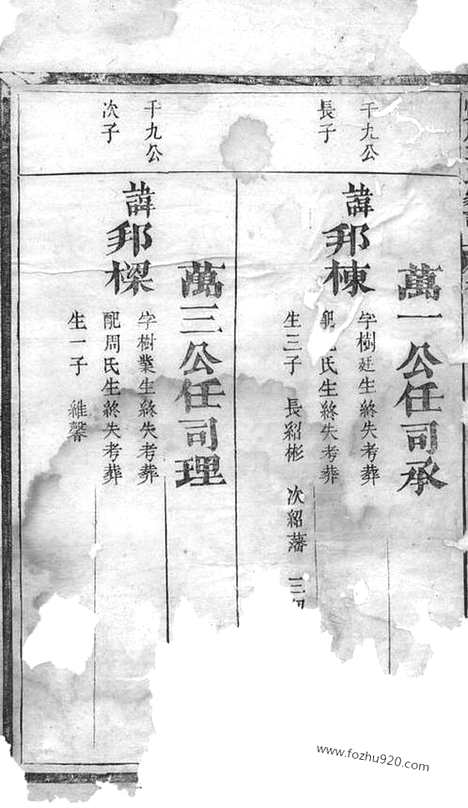 千九公
長子
萬一公任司承
諱邦棟
字樹廷生終失考葬
配 氏生終失考葬
生三子 長紹彬 次紹藩 三
千九公
次子
萬三公任司理
諱邦樑
字樹業生終失考葬
配周氏生終失考葬
生一子 維馨
www.fozhu920.com